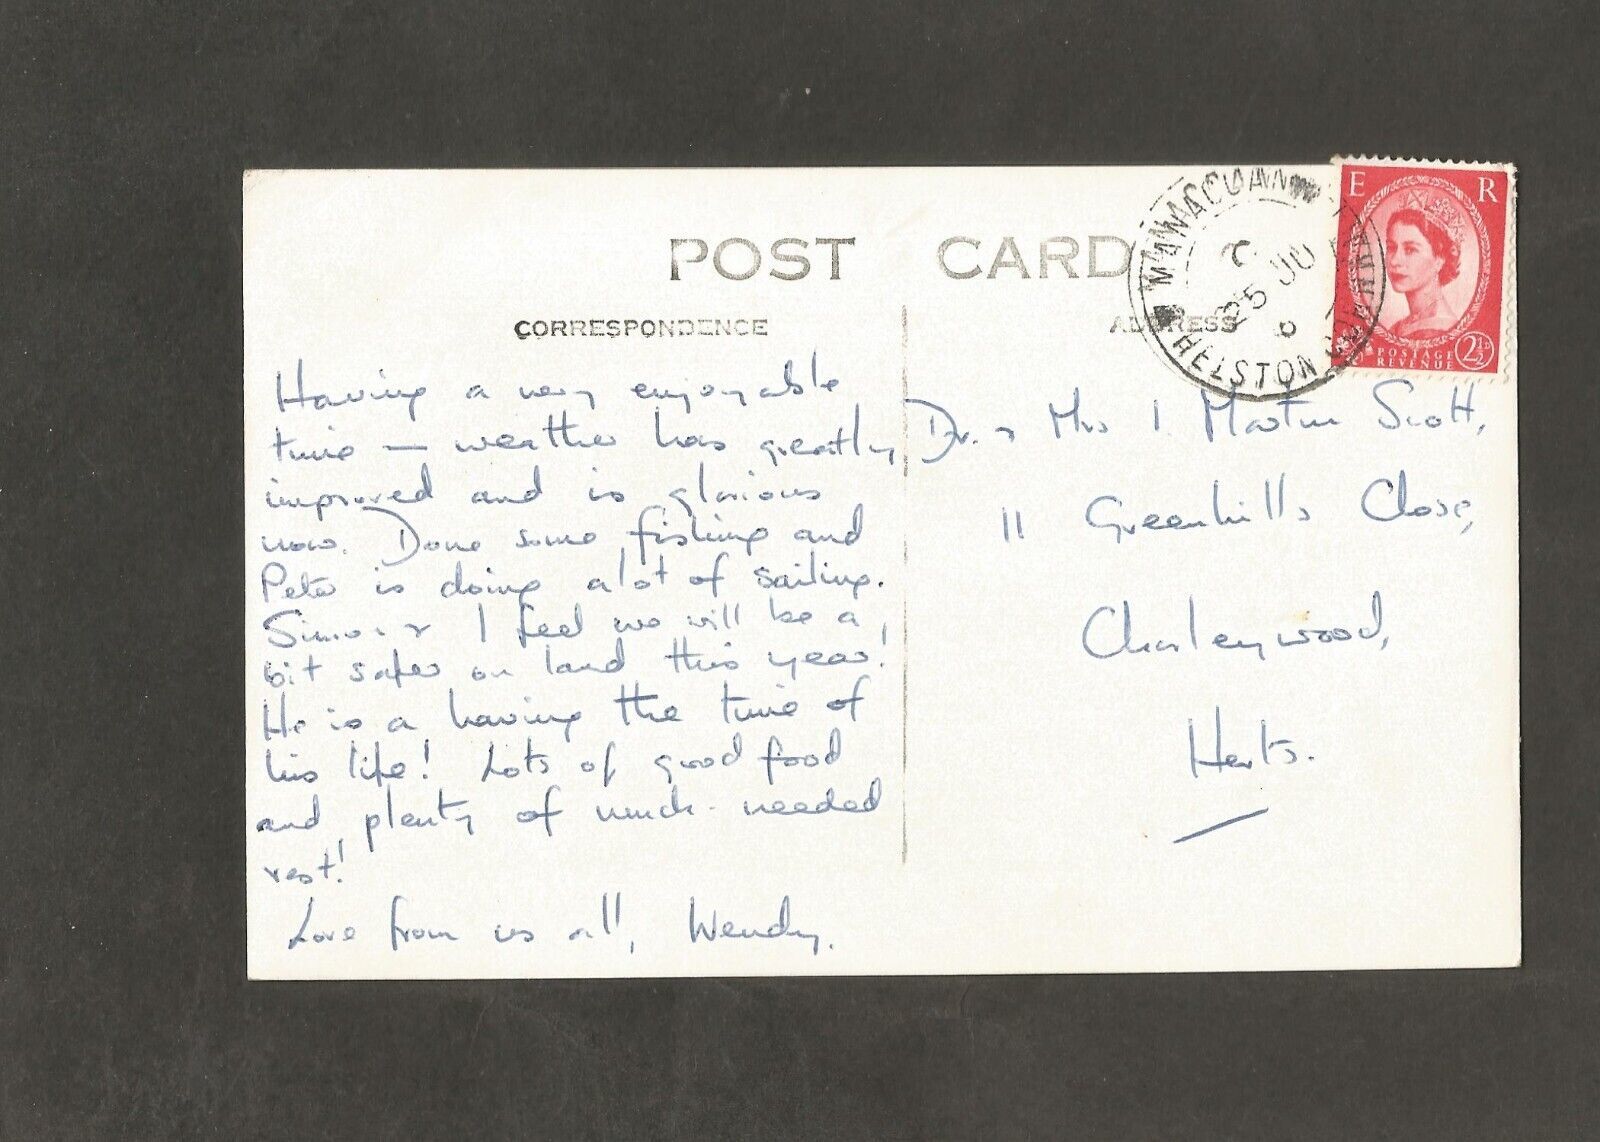 POST CARD
CORRESPONDENCE
ADDRESS
MAWAGUAN
25 JU
6
HELSTON
E R
POSTAGE
REVENUE
2½D
Having a very enjoyable
time – weather has greatly
improved and is glorious
now. Done some fishing and
Peter is doing a lot of sailing.
Simon & I feel we will be a
bit safer on land this year!
He is a having the time of
his life! Lots of good food
and plenty of much-needed
rest!
Love from us all, Wendy.
Dr. & Mrs I. Martin Scott,
11 Greenhills Close,
Chorleywood,
Herts.